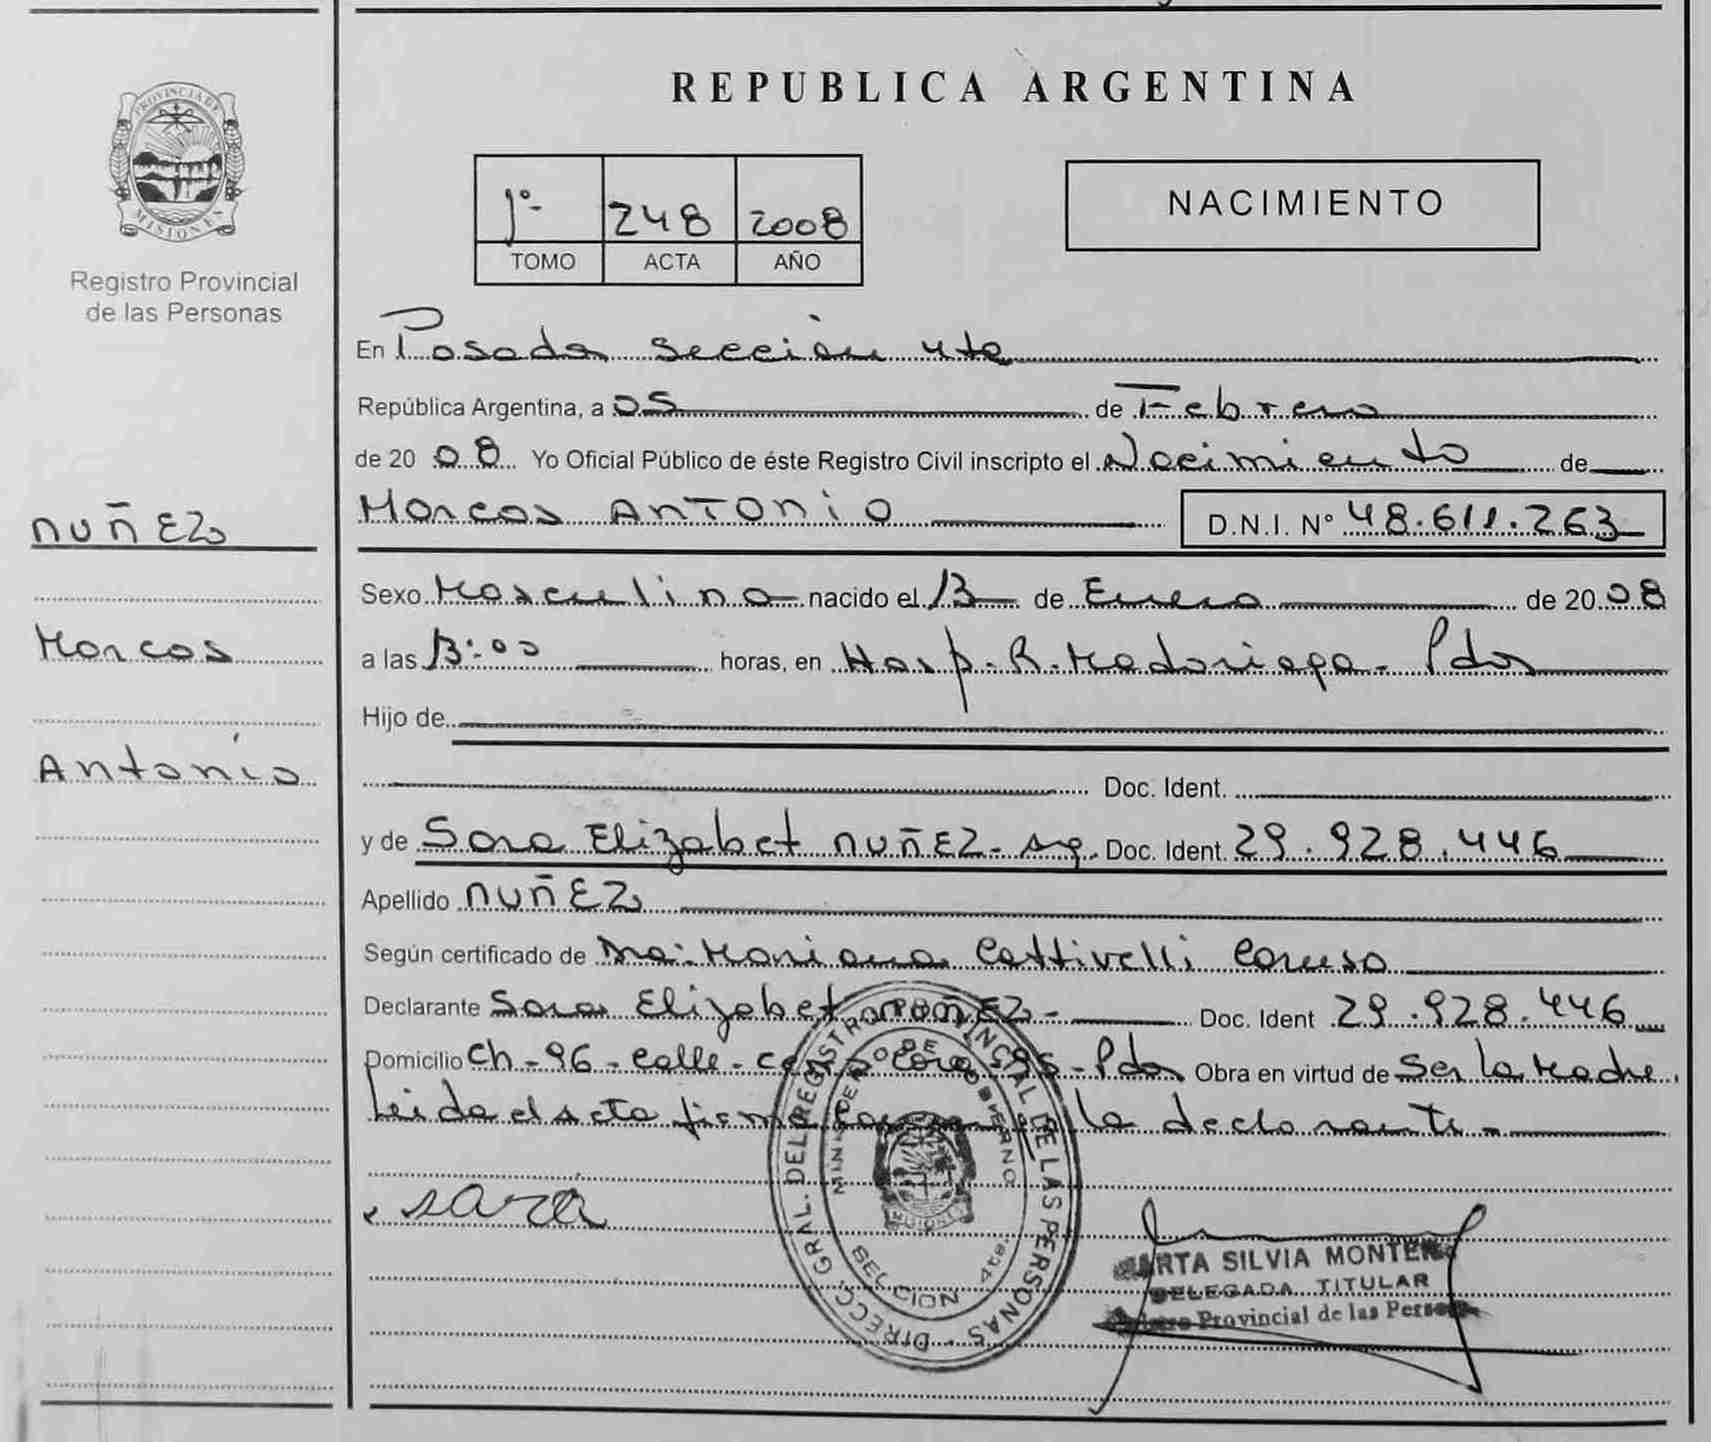 REPUBLICA ARGENTINA
PROVINCIA DE
MISIONES
Registro Provincial
de las Personas
1º- 248 2008
TOMO ACTA AÑO
NACIMIENTO
En Posadas sección 4ta
República Argentina, a 05 de Febrero
de 20 08 Yo Oficial Público de éste Registro Civil inscripto el Nacimiento de
NUÑEZ
Marcos
Antonio
Marcos ANTONIO D.N.I. Nº 48.611.263
Sexo Masculino nacido el 13 de Enero de 20 08
a las 13:00 horas, en Hosp. R. Madariaga - Pdas
Hijo de
Doc. Ident.
y de Sara Elizabet NUÑEZ - Arg. Doc. Ident. 29.928.446
Apellido NUÑEZ
Según certificado de Dra: Mariana Cattivelli Caruso
Declarante Sara Elizabet NUÑEZ - Doc. Ident 29.928.446
Domicilio Ch - 96 - calle - Cerro Cora - 96 - Pdas Obra en virtud de Ser la Madre.
Leida el acta firma la declarante -
sara
DIRECC. GRAL. DEL REGISTRO PROVINCIAL DE LAS PERSONAS
MINISTERIO DE GOBIERNO
MISIONES
SECCION 4ta.
MARTA SILVIA MONTERO
DELEGADA TITULAR
Provincial de las Personas